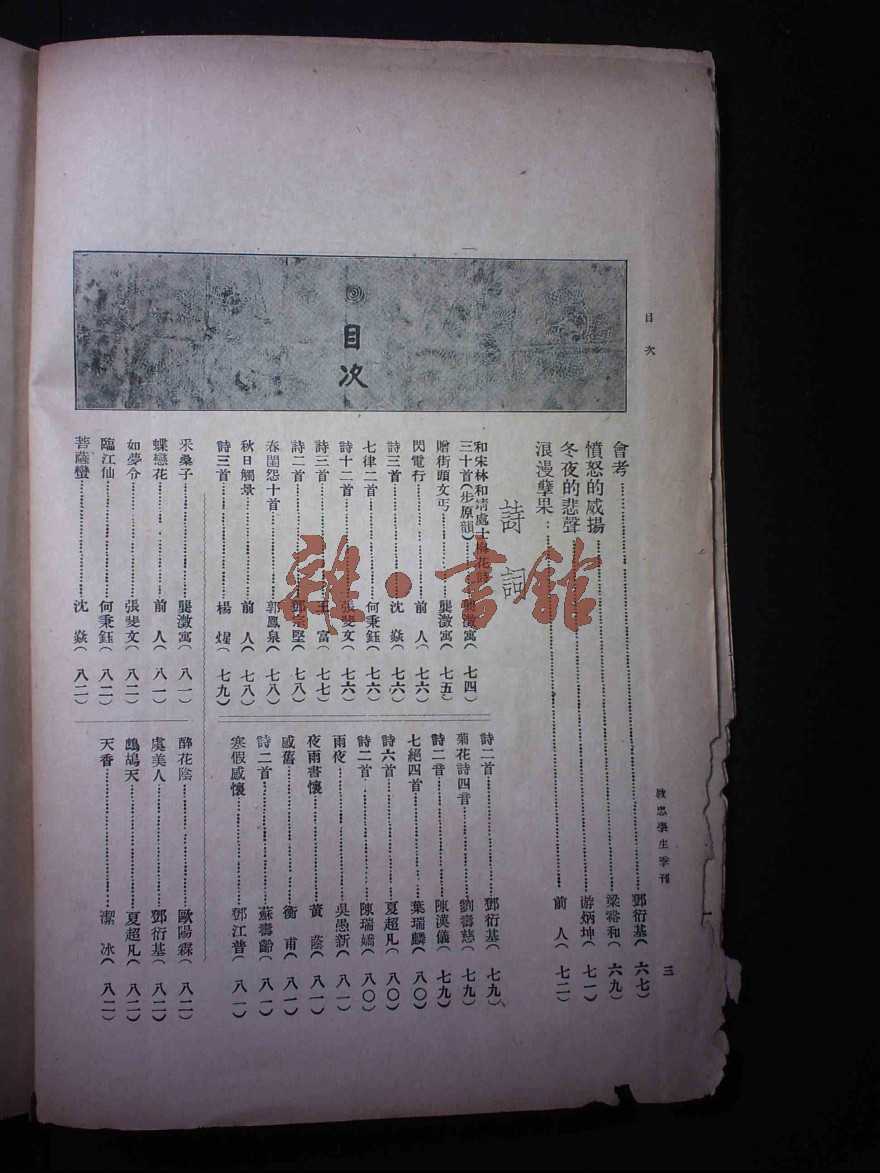 目次
目次
教忠學生季刊
三
會考⋯⋯鄧衍基(六七)
憤怒的威揚⋯⋯梁裕和(六九)
冬夜的悲聲⋯⋯游炳坤(七一)
浪漫孽果⋯⋯前人(七二)
詩詞
和宋林和靖處士梅花詩
三十首(步原韻)⋯⋯龔澂寓(七四)
贈街頭文丐⋯⋯龔澂寓(七五)
閃電行⋯⋯前人(七六)
詩三首⋯⋯沈焱(七六)
七律二首⋯⋯何秉鈺(七六)
詩十二首⋯⋯張斐文(七六)
詩三首⋯⋯王富(七七)
詩二首⋯⋯鄧宗堅(七八)
春閨怨十首⋯⋯郭鳳泉(七八)
秋日觸景⋯⋯前人(七八)
詩三首⋯⋯楊煋(七九)
詩二首⋯⋯鄧衍基(七九)
菊花詩四首⋯⋯劉壽慈(七九)
詩二首⋯⋯陳漢儀(七九)
七絕四首⋯⋯葉瑞麟(八〇)
詩六首⋯⋯夏超凡(八〇)
詩二首⋯⋯陳瑞嬌(八〇)
雨夜⋯⋯吳愚新(八一)
夜雨書懷⋯⋯黃蔭(八一)
感舊⋯⋯衡甫(八一)
詩二首⋯⋯蘇壽齡(八一)
寒假感懷⋯⋯鄧江普(八一)
采桑子⋯⋯龔澂寓(八一)
蝶戀花⋯⋯前人(八一)
如夢令⋯⋯張斐文(八二)
臨江仙⋯⋯何秉鈺(八二)
菩薩蠻⋯⋯沈焱(八二)
醉花陰⋯⋯歐陽霖(八二)
虞美人⋯⋯鄧衍基(八二)
鷓鴣天⋯⋯夏超凡(八二)
天香⋯⋯潔冰(八二)
雜·書館